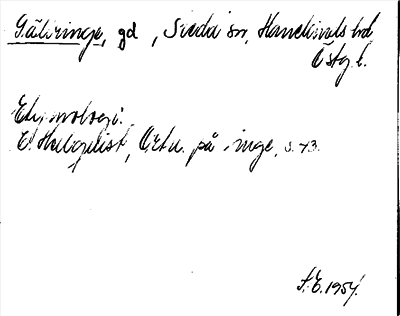 Gälvinge, gd , Svida sn, Handimds hd,
Östg l.
Etymologi:
E. Hellquist, Ortn. på -inge, s. 43.
S.E. 1954.